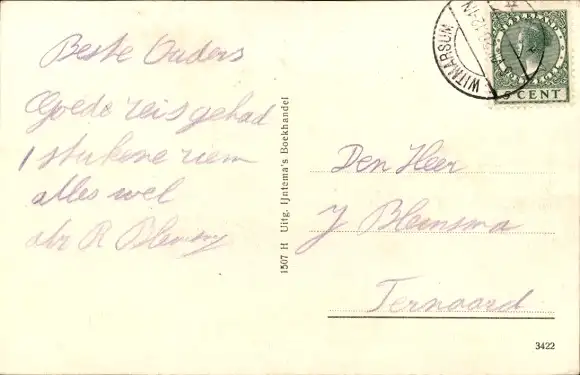 Beste Ouders
Goede reis gehad
1 stukene riem
alles wel
WITMARSUM
5 CENT
1507 H Uitg. IJntema's Boekhandel
Den Heer
J Bleinsma
Ternaard
3422